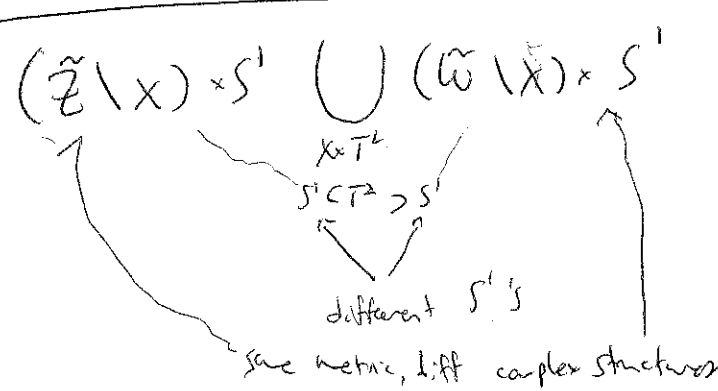 (Z̃ \ X) × S¹ ⋃ (W̃ \ X̄) × S¹
X × T²
S¹ ⊂ T² ⊃ S¹
different S¹'s
same metric, diff complex structures